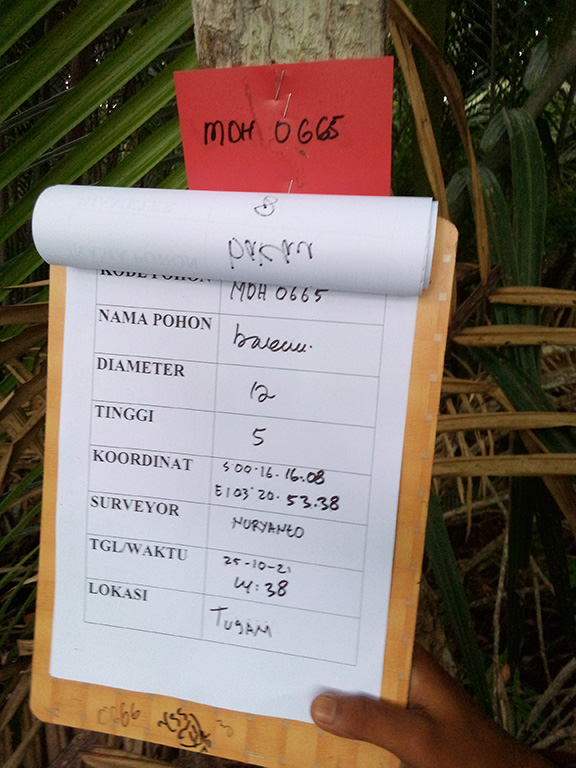 MDH 0665
KODE POHON MDH 0665
NAMA POHON
DIAMETER 12
TINGGI 5
KOORDINAT S 00.16.16.08
E 103 20.53.38
SURVEYOR NURYANTO
TGL/WAKTU 25-10-21
14:38
LOKASI TUJAM
0666